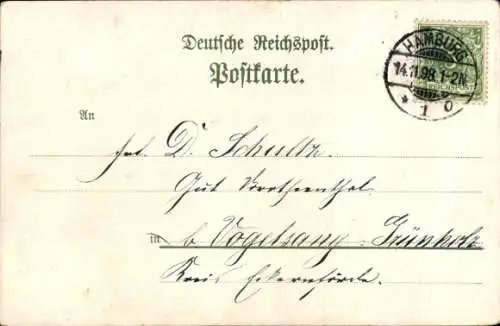 Deutsche Reichspost.
Postkarte.
HAMBURG
14.11.98.1-2N.
* 1 o
REICHSPOST
An
D. Schultz
Gut Dorotheenthal
in b. Vogelsang-Grünholz
Kreis Eckernförde.